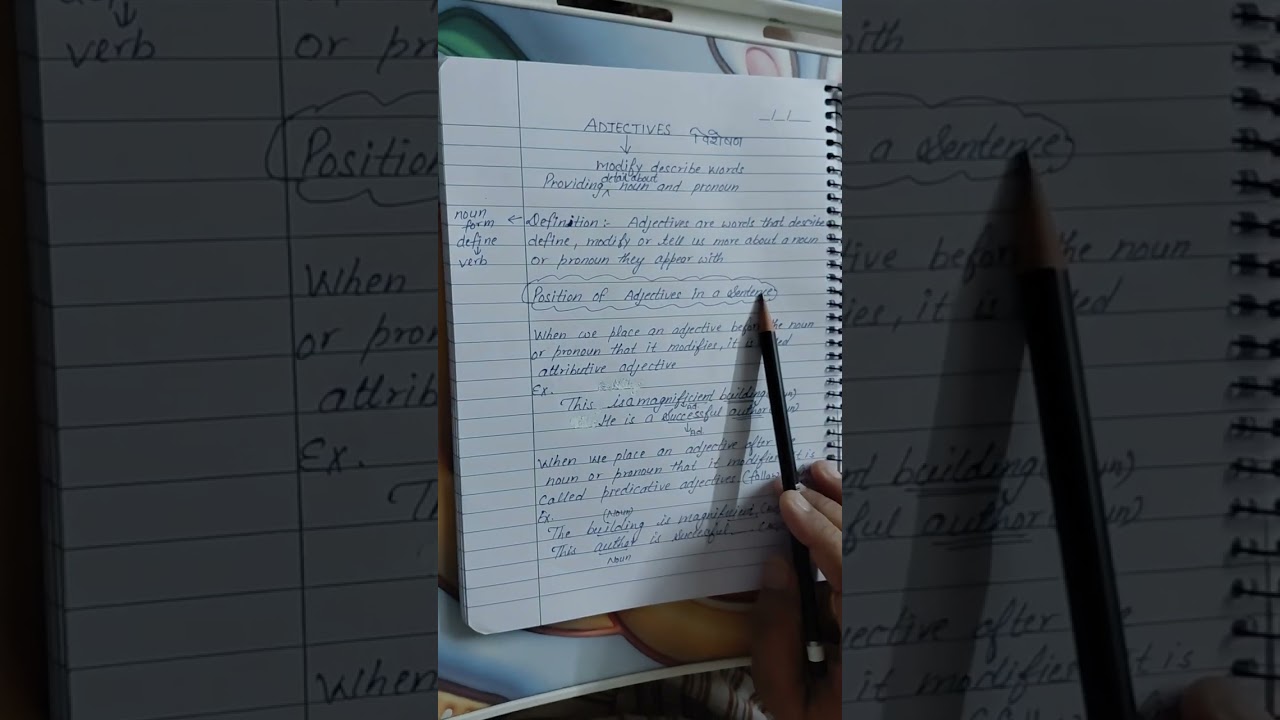 ADJECTIVES विशेषण
modify describe words
detail about
Providing ^ noun and pronoun
noun form define verb
Definition :- Adjectives are words that describe
define, modify or tell us more about a noun
or pronoun they appear with
Position of Adjectives In a Sentence
When we place an adjective before the noun
or pronoun that it modifies, it is
attributive adjective
Ex.
This is a magnificient building
ad
He is a successful author
ad
When we place an adjective after
noun or pronoun that it modifies it is
called predicative adjectives. (follow
Ex. (Noun)
The building is magnificient.
This author is
Noun